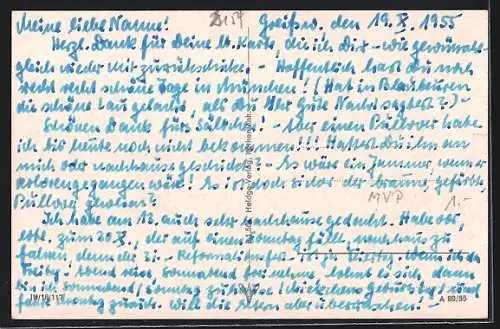 Meine liebe Nanne! Greifsw. den 19. X. 1955
Herzl. Dank für Deine lb. Karte, die ich Dir – wie gewünscht –
gleich wieder mit zurückschicke. – Hoffentlich hast Du noch
recht recht schöne Tage in München! (Hat in Blaubeuren
die schöne lang, als Du Gute Nacht sagtest?) –
Schönen Dank fürs Sältchen! – Aber einen Pullover habe
ich bis heute noch nicht bekommen!!! Hattest Du ihn an
mich oder nachhause geschickt? – Es wär ein Jammer, wenn er
verlorengegangen wäre! Es ist doch sicher der braune, gefärbte
Pullover gewesen?
MVP 1.-
Ich habe am 13. auch sehr nachhause gedacht. Habe vor,
zum 30. X., der auf einen Sonntag fällt, nachhaus zu
fahren, denn der 31. – Reformationsfest – ist ja Feiertag. Wenn ich dann
Freitag Abend reise, Sonnabend frei nehme, lohnt es sich, dann
bin ich Sonnabend/Sonntag zuhause (Geburtstag) und
Montag zurück. Will die Eltern aber überraschen! –
IV/18/117 A 89/55